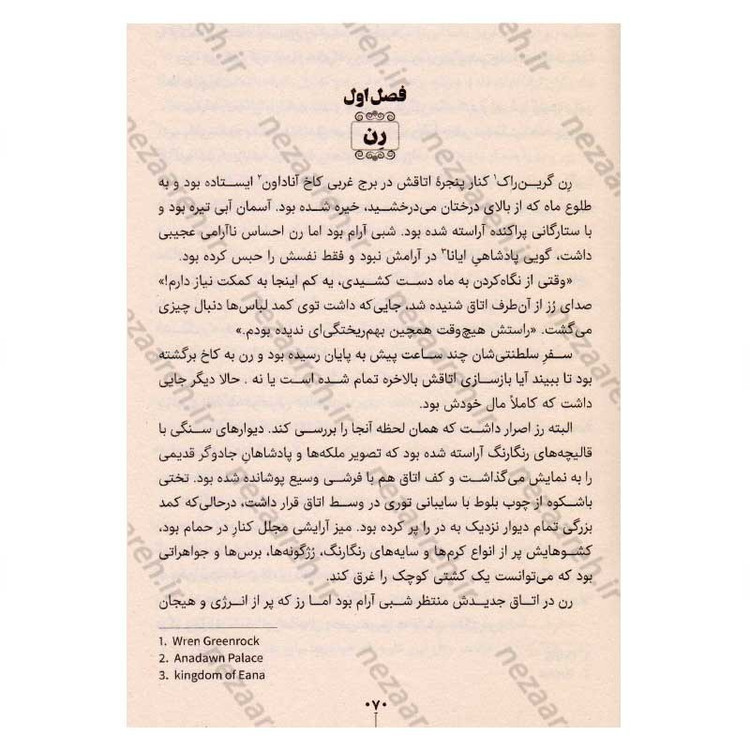 فصل اول
رِن
رِن گرین‌راک۱ کنار پنجرهٔ اتاقش در برج غربی کاخ آناداون۲ ایستاده بود و به
طلوع ماه که از بالای درختان می‌درخشید، خیره شده بود. آسمان آبی تیره بود و
با ستارگانی پراکنده آراسته شده بود. شبی آرام بود اما رن احساس ناآرامی عجیبی
داشت، گویی پادشاهیِ ایانا۳ در آرامش نبود و فقط نفسش را حبس کرده بود.
«وقتی از نگاه‌کردن به ماه دست کشیدی، یه کم اینجا به کمکت نیاز دارم!»
صدای رُز از آن‌طرف اتاق شنیده شد، جایی‌که داشت توی کمد لباس‌ها دنبال چیزی
می‌گشت. «راستش هیچ‌وقت همچین بهم‌ریختگی‌ای ندیده بودم.»
سفر سلطنتی‌شان چند ساعت پیش به پایان رسیده بود و رن به کاخ برگشته
بود تا ببیند آیا بازسازی اتاقش بالاخره تمام شده است یا نه . حالا دیگر جایی
داشت که کاملاً مال خودش بود.
البته رز اصرار داشت که همان لحظه آنجا را بررسی کند. دیوارهای سنگی با
قالیچه‌های رنگارنگ آراسته شده بود که تصویر ملکه‌ها و پادشاهانِ جادوگر قدیمی
را به نمایش می‌گذاشت و کف اتاق هم با فرشی وسیع پوشانده شده بود. تختی
باشکوه از چوب بلوط با سایبانی توری در وسط اتاق قرار داشت، درحالی‌که کمد
بزرگی تمام دیوار نزدیک به در را پر کرده بود. میز آرایشی مجلل کنارِ در حمام بود،
کشوهایش پر از انواع کرم‌ها و سایه‌های رنگارنگ، رُژگونه‌ها، برس‌ها و جواهراتی
بود که می‌توانست یک کشتی کوچک را غرق کند.
رن در اتاق جدیدش منتظر شبی آرام بود اما رز که پر از انرژی و هیجان
1. Wren Greenrock
2. Anadawn Palace
3. kingdom of Eana
۰۷۰
nezaareh.ir